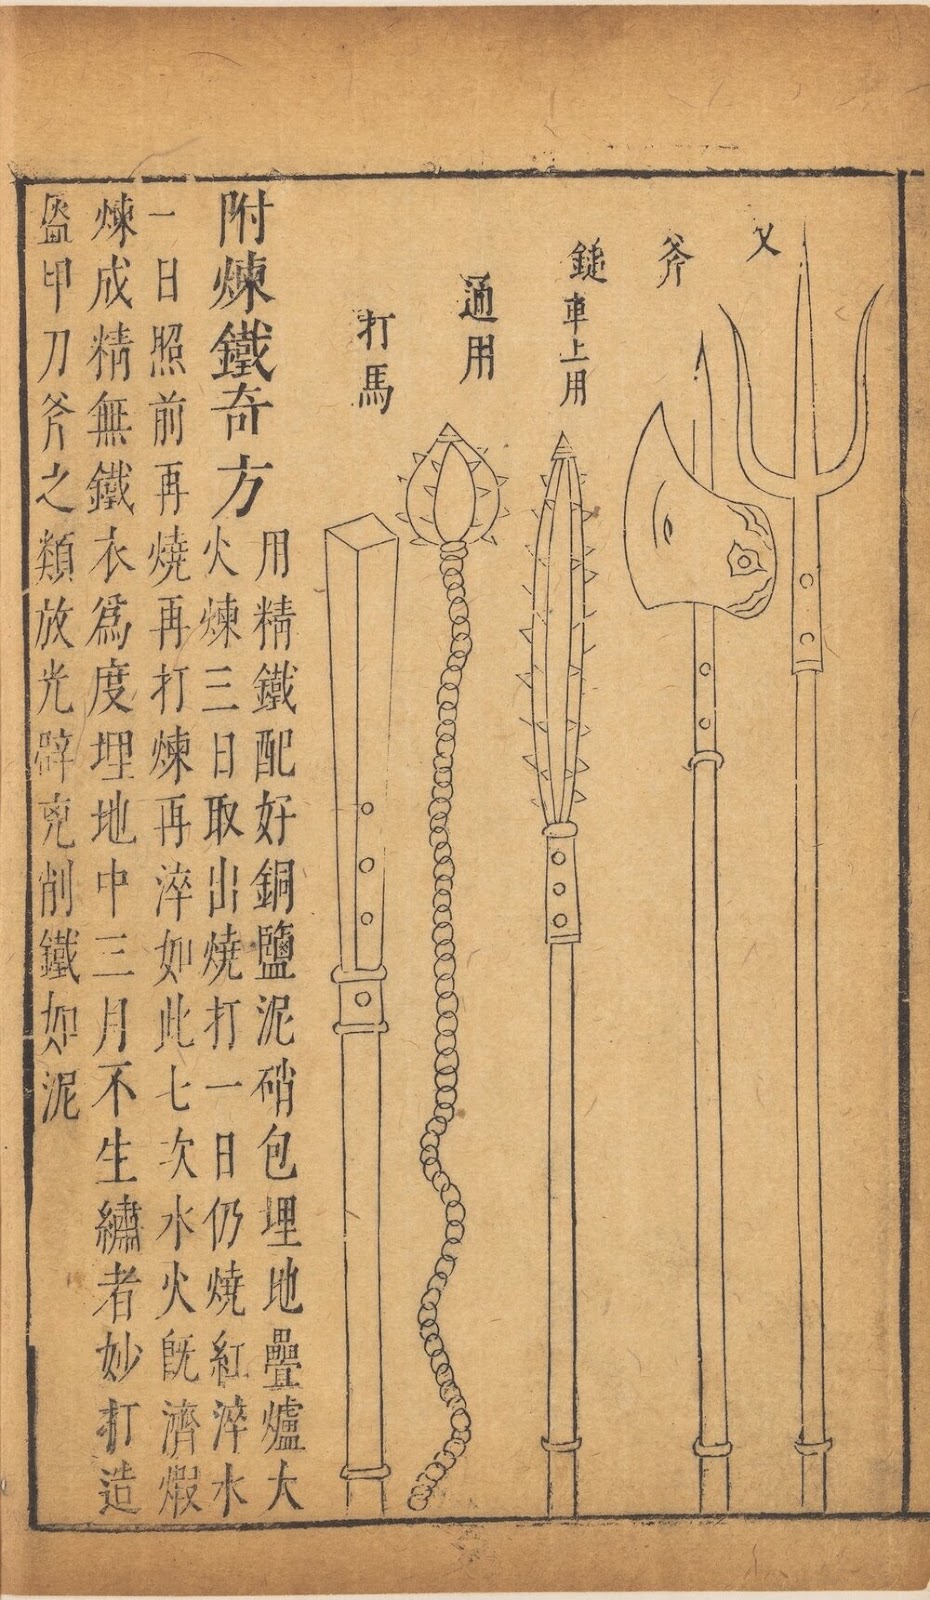 叉
斧
鎚車上用
通用
打馬
附煉鐵奇方
用精鐵配好銅鹽泥硝包埋地疊爐大
火煉三日取出燒打一日仍燒紅淬水
一日照前再燒再打煉再淬如此七次水火既濟煆
煉成精無鐵衣爲度埋地中三月不生繡者妙打造
盔甲刀斧之類放光辟兇削鐵如泥